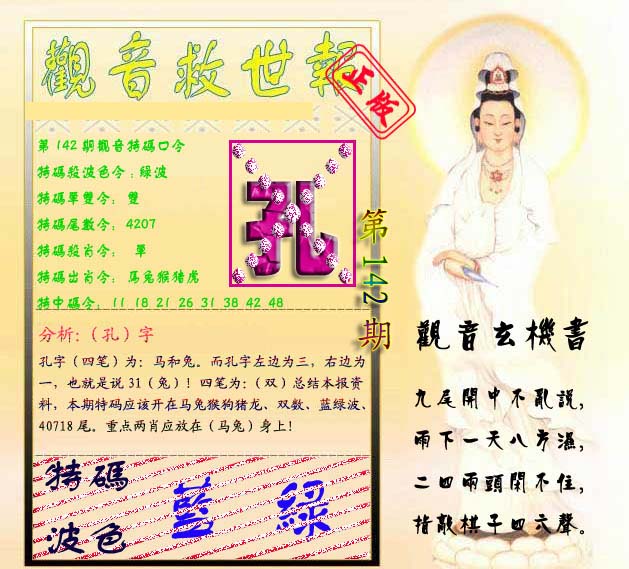 觀音救世報
正版
第142期觀音特碼口令
特碼殺波色令:綠波
特碼單雙令: 雙
特碼尾數令: 4207
特碼殺肖令: 單
特碼出肖令: 馬兔猴猪虎
特中碼令: 11 18 21 26 31 38 42 48
孔
第142期
分析:（孔）字
孔字（四笔）为：马和兔。而孔字左边为三，右边为
一，也就是说 31（兔）！四笔为：（双）总结本报资
料，本期特码应该开在马兔猴狗猪龙、双数、蓝绿波、
40718 尾。重点两肖应放在（马兔）身上！
特碼
波色
藍 綠
觀音玄機書
九尾開中不亂說，
兩下一天八方濕，
二四兩頭閑不住，
指敲棋子四六聲。